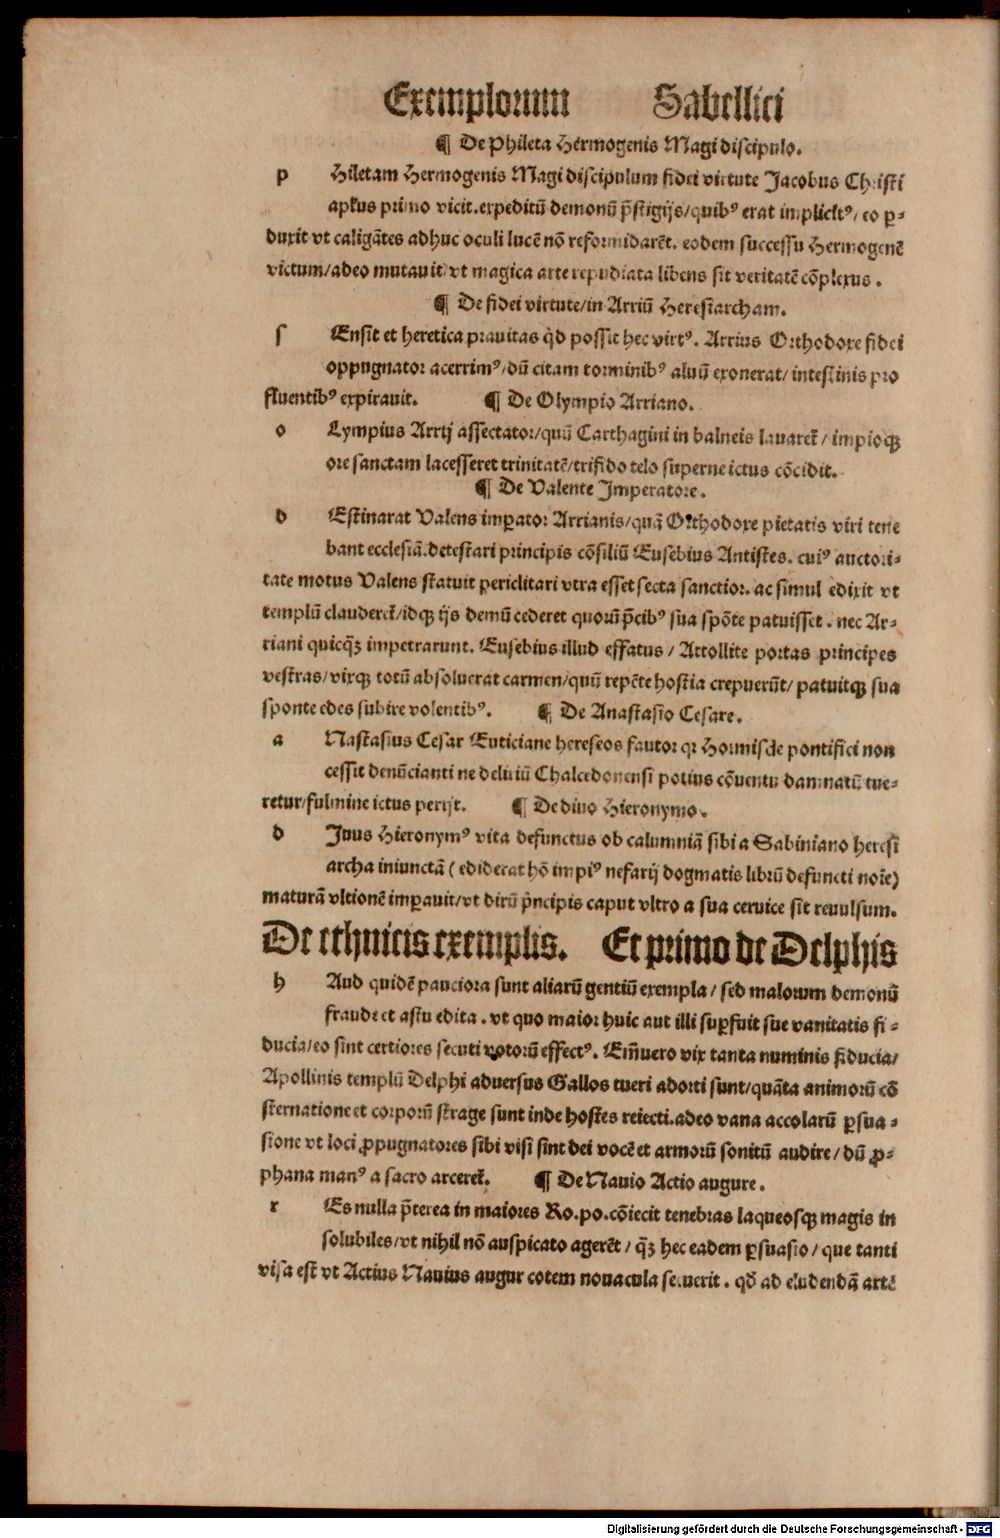 Exemplorum Sabellici
¶ De Phileta Hermogenis Magi discipulo.
p Hiletam Hermogenis Magi discipulum fidei virtute Jacobus Christi
apl̓us primo vicit.expeditū demonū p̄stigijs/quibꝰ erat implicitꝰ/ eo ꝑ-
duxit vt caligātes adhuc oculi lucē nō reformidarēt. eodem successu Hermogenē
victum/adeo mutauit/vt magica arte repudiata libens sit veritatē cōplexus.
¶ De fidei virtute/in Arriū Heresiarcham.
s Ensit et heretica prauitas qd̓ possit hec virtꝰ. Arrius Orthodoxe fidei
oppugnator acerrimꝰ/dū citam torminibꝰ aluū exonerat/intestinis pro
fluentibꝰ expirauit. ¶ De Olympio Arriano.
o Lympius Arrij assectator/quū Carthagini in balneis lauaret̓/ impioqꝫ
ore sanctam lacesseret trinitatē/trifido telo superne ictus cōcidit.
¶ De Valente Imperatore.
d Estinarat Valens imꝑator Arrianis/quā Orthodoxe pietatis viri tene
bant ecclesiā.detestari principis cōsiliū Eusebius Antistes. cuiꝰ auctori-
tate motus Valens statuit periclitari vtra esset secta sanctior. ac simul edixit vt
templū clauderet̓/idqꝫ ijs demū cederet quorū p̄cibꝰ sua spōte patuisset. nec Ar-
riani quicqꝫ̄ impetrarunt. Eusebius illud effatus/ Attollite portas principes
vestras/vixqꝫ totū absoluerat carmen/quū repēte hostia crepuerūt/ patuitqꝫ sua
sponte edes subire volentibꝰ. ¶ De Anastasio Cesare.
a Nastasius Cesar Euticiane hereseos fautor qr Hormisde pontifici non
cessit denūcianti ne deliriū Chalcedonensi potius cōuentu damnatū tue-
retur/fulmine ictus perijt. ¶ De diuo Hieronymo.
d Juus Hieronymꝰ vita defunctus ob calumniā sibi a Sabiniano heresi
archa iniunctā (ediderat hō impiꝰ nefarij dogmatis librū defuncti noīe)
maturā vltionē imꝑauit/vt dirū p̓ncipis caput vltro a sua ceruice sit reuulsum.
De ethnicis exemplis. Et primo de Delphis
h Aud quidē pauciora sunt aliarū gentiū exempla/ sed malorum demonū
fraude et astu edita. vt quo maior huic aut illi suꝑfuit sue vanitatis fi-
ducia/eo sint certiores secuti votorū effectꝰ. Em̄uero vix tanta numinis fiducia/
Apollinis templū Delphi aduersus Gallos tueri adorti sunt/quāta animorū cō
sternatione et corporū strage sunt inde hostes reiecti.adeo vana accolarū ꝑsua-
sione vt loci ꝓpugnatores sibi visi sint dei vocē et armorū sonitū audire/ dū ꝓ-
phana manꝰ a sacro arceret̓. ¶ De Nauio Actio augure.
r Es nulla p̄terea in maiores Ro.po.cōiecit tenebras laqueosqꝫ magis in
solubiles/vt nihil nō auspicato agerēt/ qꝫ̄ hec eadem ꝑsuasio/ que tanti
visa est vt Actius Nauius augur cotem nouacula secuerit. qd̓ ad eludendā artē
Digitalisierung gefördert durch die Deutsche Forschungsgemeinschaft - DFG